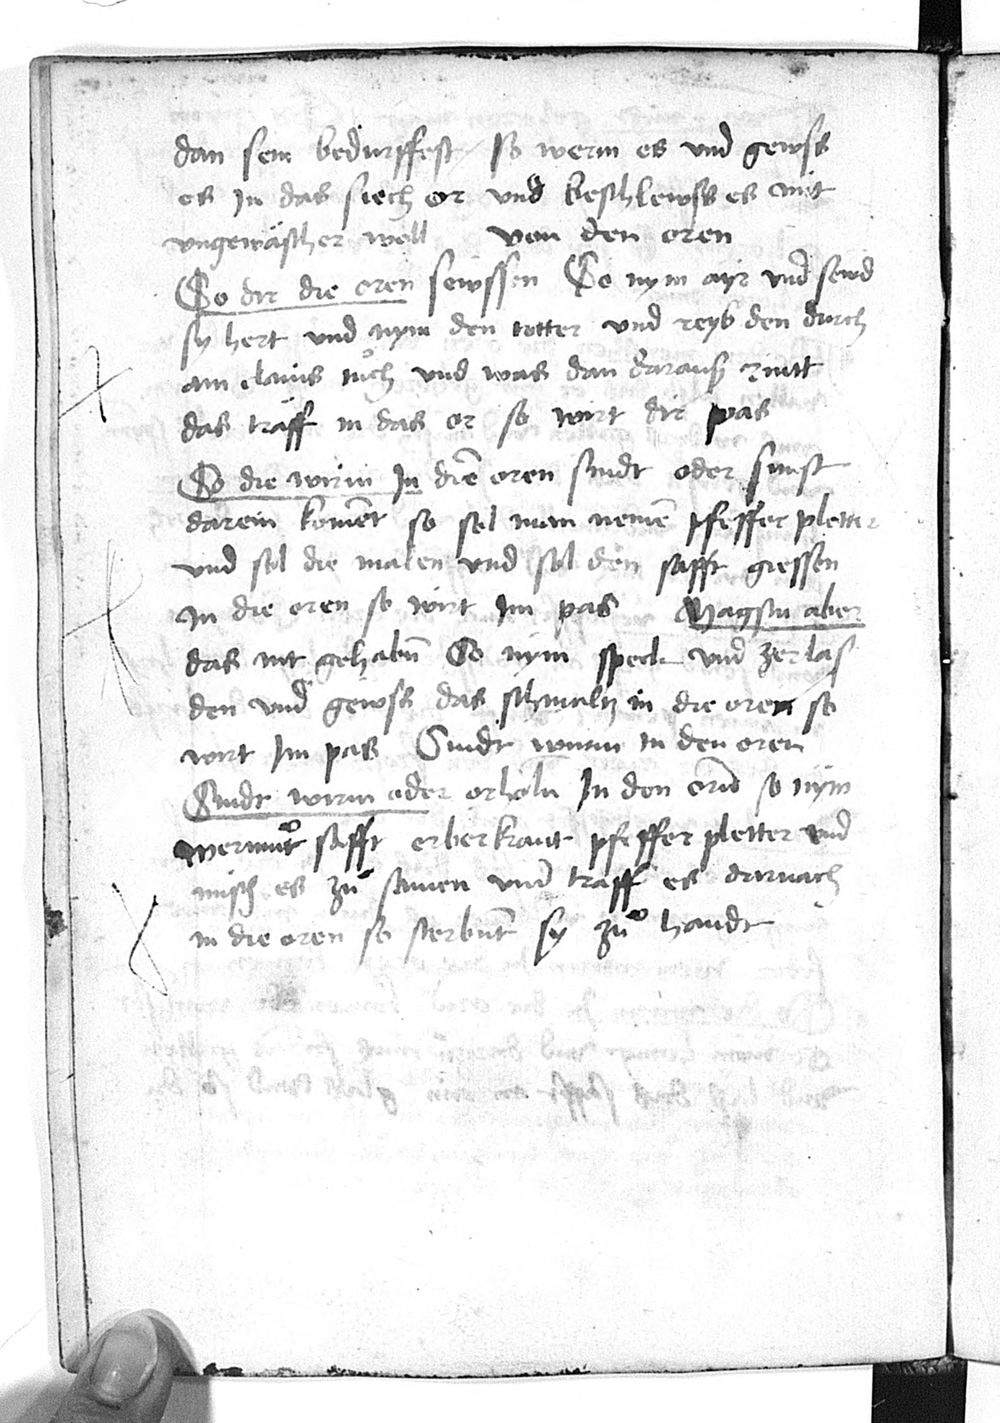 dan sein bedurffest so werm es und gewss
es In das siech or und beschlewss es mit
ungewäscher woll von den oren
So dir die oren sewssen So nym ayr und sewd
sy hert und nym den totter und reyb den durch
ain clains tůch und was dan daraus rintt
das träff in das or so wirt dir pas
So die würm In die oren sindt oder sunst
darein koment so sol man neme pfeffer pletter
und sol die malen und sol den safft giessen
In die oren so wirt Im pas Magstu aber
das nit gehabn So nym speck und zerlas
den und gewss das schmaltz in die oren so
wirt Im pas Sindt wurm in den oren
Sindt wirm oder orhöln In den orn so nym
wermůt safft erberkraut pfeffer pletter und
misch es zů samen und traff es darnach
in die oren so sterbent sy zů handt